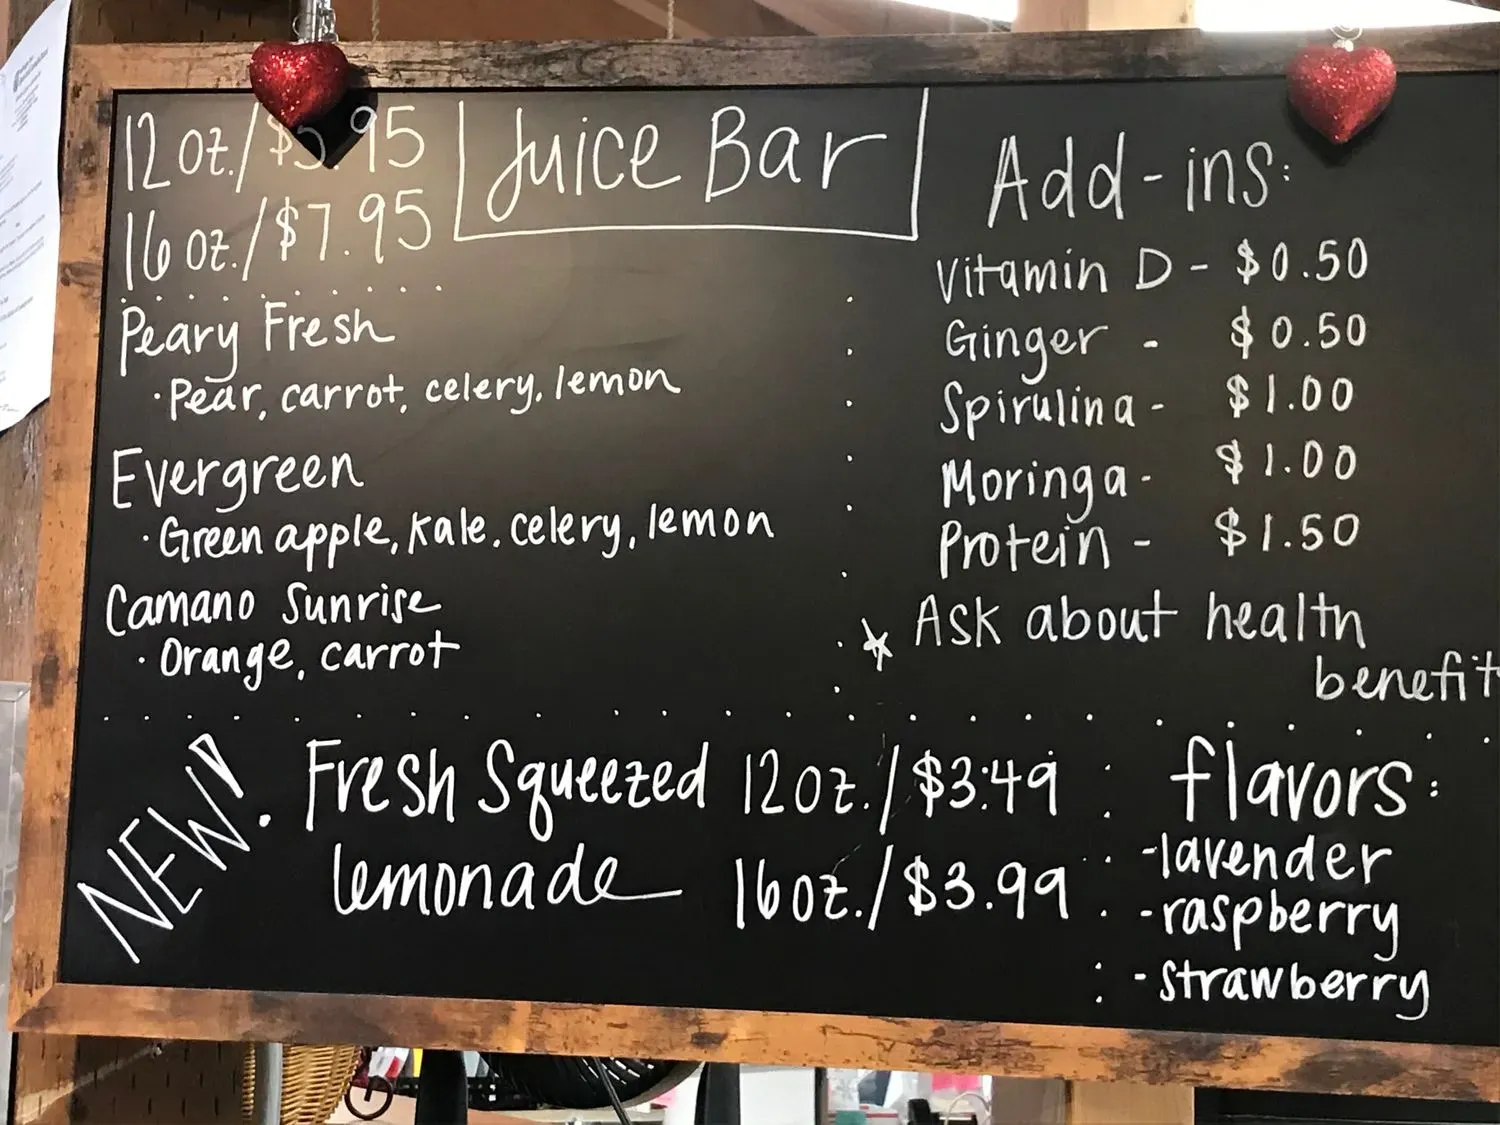 12 oz./$5.95
16 oz./$7.95
Juice Bar
Peary Fresh
· Pear, carrot, celery, lemon
Evergreen
· Green apple, kale, celery, lemon
Camano Sunrise
· Orange, carrot
Add-ins:
Vitamin D - $0.50
Ginger - $0.50
Spirulina - $1.00
Moringa - $1.00
Protein - $1.50
Ask about health
benefit
NEW!
Fresh Squeezed
lemonade
12oz./$3.49
16oz./$3.99
flavors:
-lavender
-raspberry
-strawberry